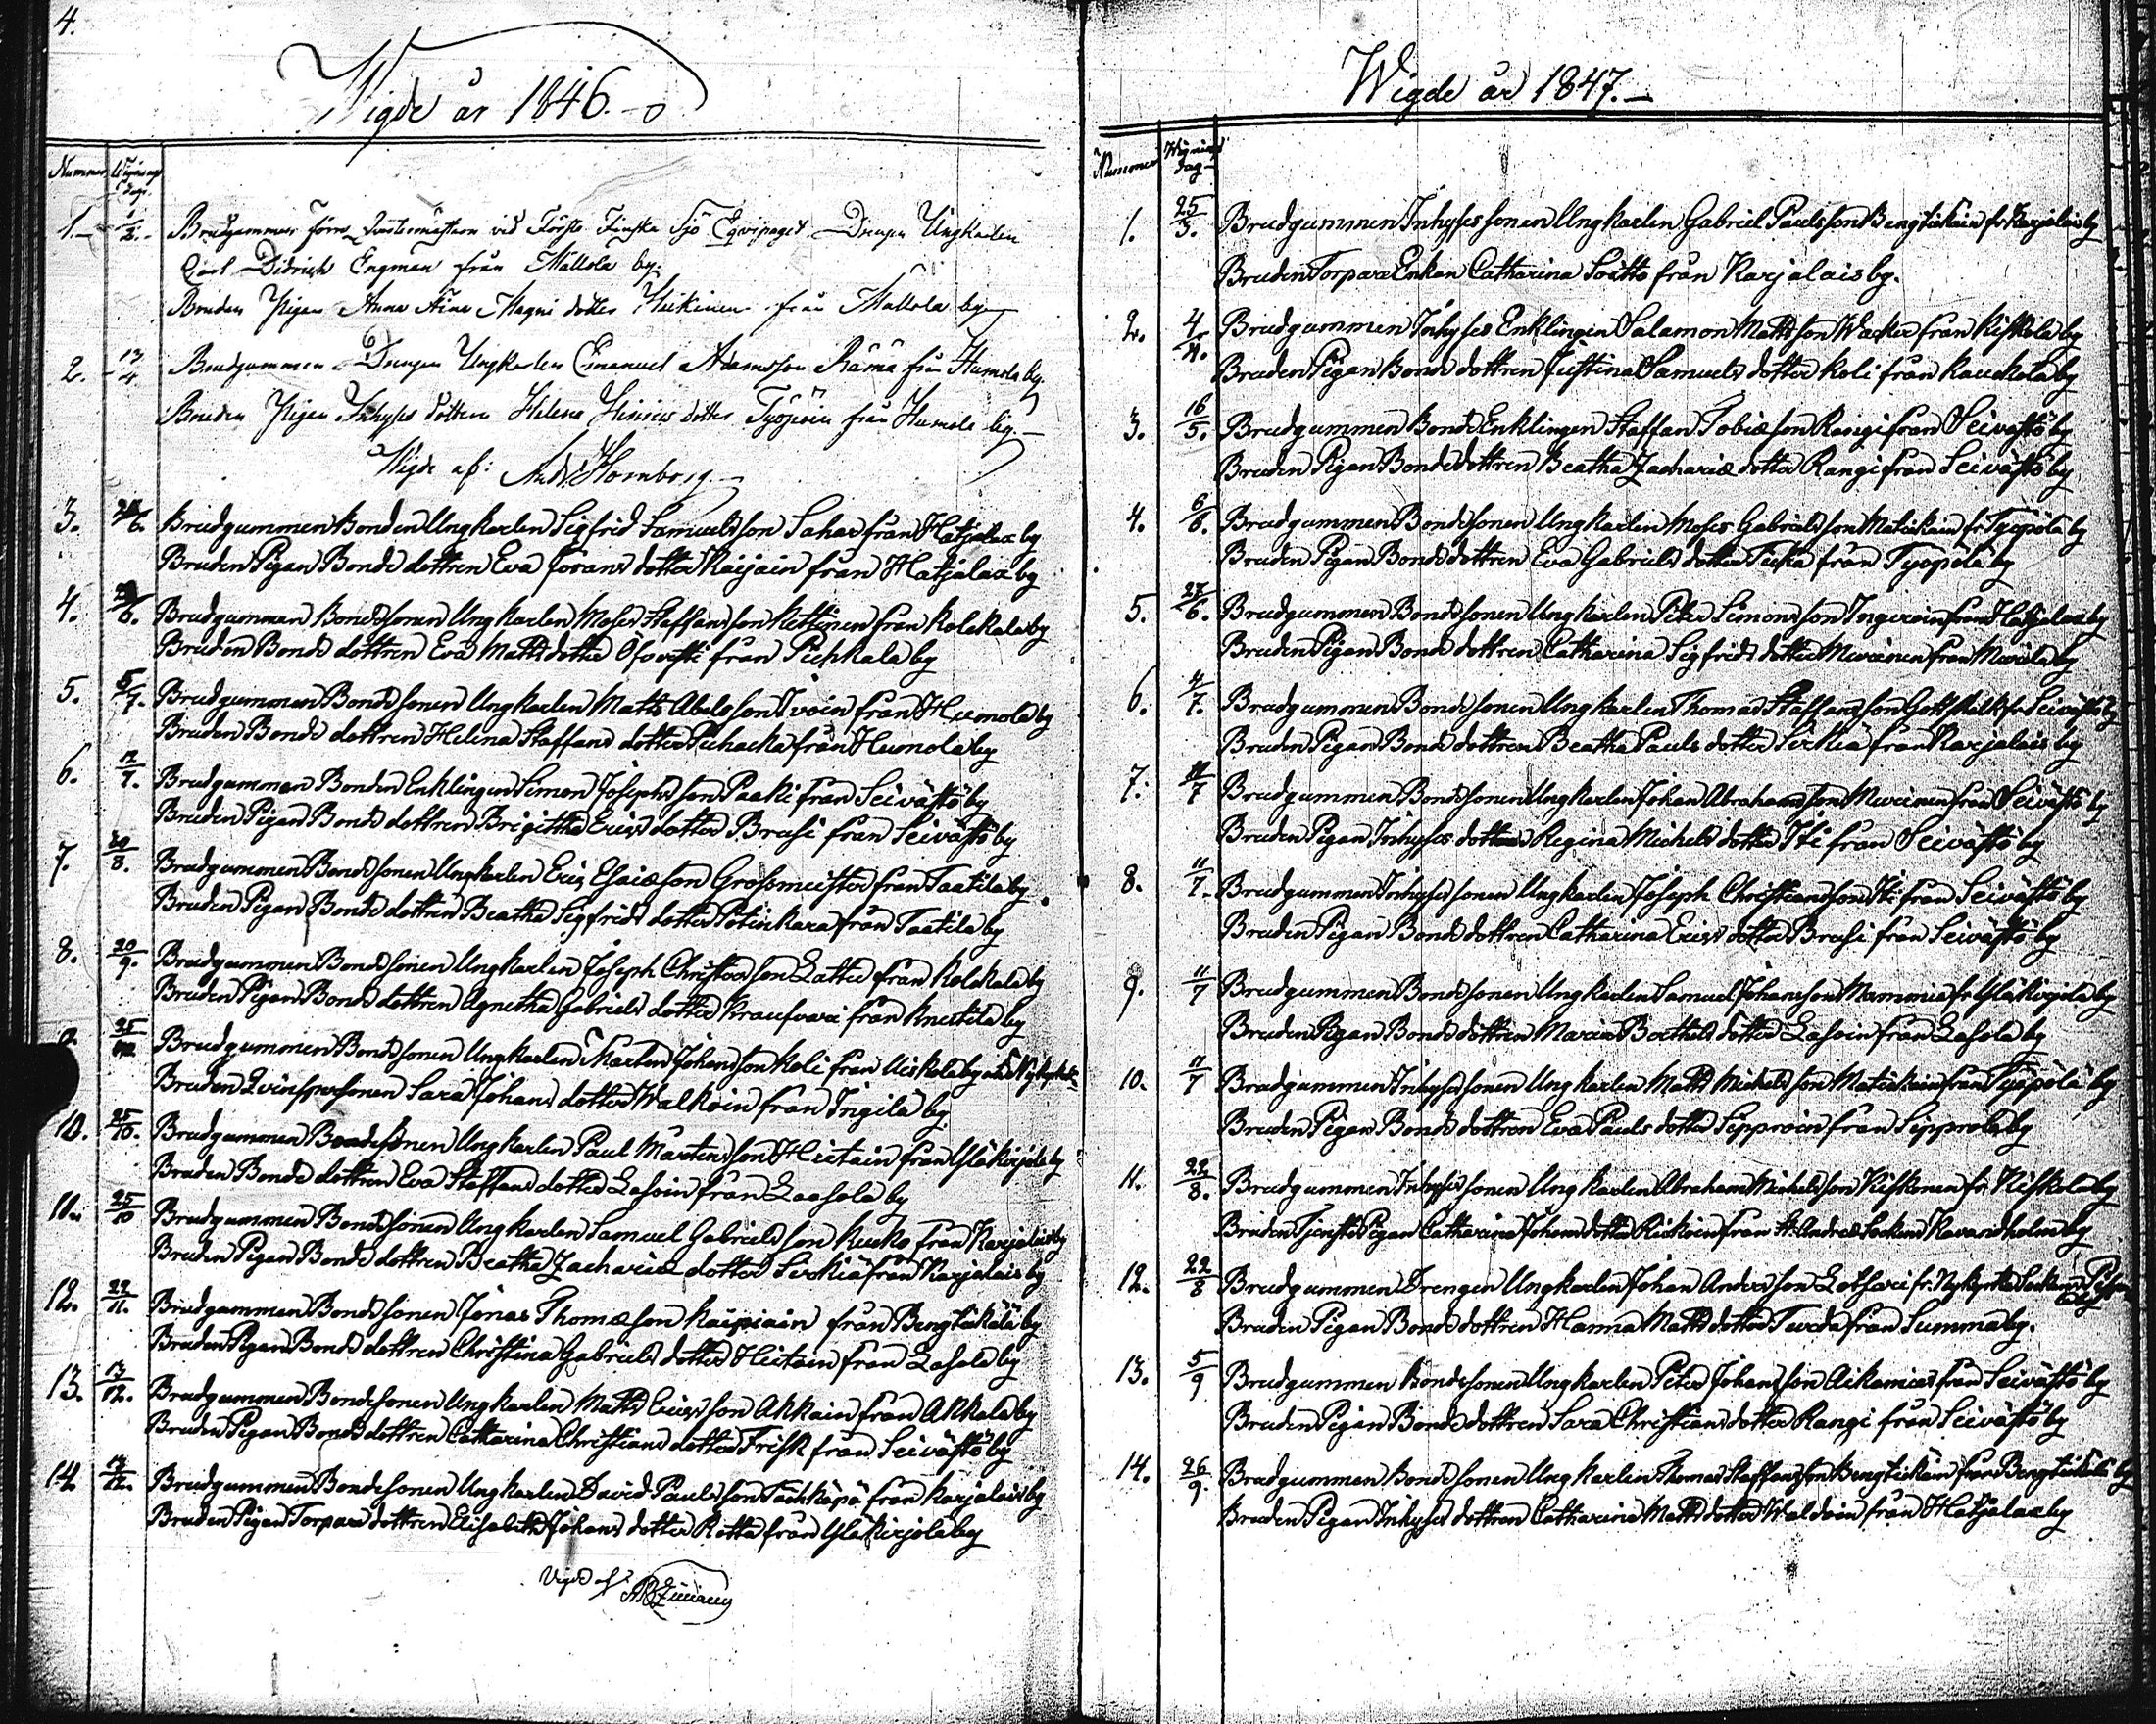 4.
Wigde år 1846.
Nummer Wignings dag.
1. 1/2. Brudgummen förre Qvartermästarn vid Första Finska Sjö Eqvipaget Drengen Ungkarlen
Carl Didrich Engman från Mállola by.
Bruden Pigan Anna Magni dotter Heikinen från Mállola by
2. 13/4. Brudgummen Drengen Ungkarlen Emanuel Adamsson Rämä från Humola by.
Bruden Pigan Inhyses dottren Helena Hinrics dotter Työjöin från Humola by.
Wigde af: And: Homborg.
3. /6. Brudgummen Bonden Ungkarlen Sigfrid Samuelsson Sahar från Hatjalax by
Bruden Pigan Bonde dottren Eva Jorans dotter Kaijain från Hatjalax by
4. /6. Brudgummen Bondesonen Ungkarlen Moses Staffansson Kettinen från Kolckala by
Bruden Bonde dottren Eva Matts dotter från Pichkala by
5. 5/7. Brudgummen Bondesonen Ungkarlen Matts Abelsson Ivoin från Humola by
Bruden Bonde dottren Helena Staffans dotter Puhacka från Humola by
6. 12/7. Brudgummen Bonden Enklingen Simon Josephsson Paaki från Seivästö by
Bruden Pigan Bonde dottren Brigitha Erics dotter Brusi från Seivästö by
7. 30/8. Brudgummen Bondesonen Ungkarlen Eric Esaiæson Grossmeister från Taatila by.
Bruden Pigan Bonde dottren Beatha Sigfrids dotter Pötinkara från Taatila by
8. 20/9. Brudgummen Bondesonen Ungkarlen Joseph Christersson Lattu från Kolckala by
Bruden Pigan Bonde dottren Agnetha Gabriels dotter Kraufvari från Knuttila by
9. 25/10. Brudgummen Bondesonen Ungkarlen Marten Johansson Koli från Uiskola by
Bruden Qvinspersonen Sara Johans dotter Walkoin från Ingilä by
10. 25/10. Brudgummen Bondesonen Ungkarlen Paul Mårtensson Hietain från Yläkirjola by
Bruden Bonde dottren Eva Staffans dotter Lasoin från Laasola by
11. 25/10 Brudgummen Bondesonen Ungkarlen Samuel Gabrielsson Kukko från Karjalais by
Bruden Pigan Bonde dottren Beatha Zachariæ dotter Sirkiä från Karjalais by
12. 22/11. Brudgummen Bondesonen Jonas Thomæson Kaipiain från Bengtickälä by
Bruden Pigan Bonde dottren Christina Gabriels dotter Hietain från Lasola by
13. 13/12. Brudgummen Bondesonen Ungkarlen Matts Ericsson Akkain från Akkala by
Bruden Pigan Bonde dottren Catharina Christians dotter Frisk från Seivästö by
14. 13/12. Brudgummen Bondesonen Ungkarlen David Paulsson Täckäpä från Karjalais by
Bruden Pigan Torpare dottren Elisabeth Johans dotter Rotta från Yläkirjola by
Vigde af
Wigde år 1847.
Nummer Wignings dag
1. 25/3. Brudgummen Inhyses sonen Ungkarlen Gabriel Paulsson Bengtickäin fr Karjalais by
Bruden Torpare Enkan Catharina Soitto från Karjalais by.
2. 4/4. Brudgummen Inhyses Enklingen Salamon Mattsson Wacker från Kiskola by
Bruden Pigan Bonde dottren Justina Samuels dotter Koli från Kauckola by
3. 16/5. Brudgummen Bonde Enklingen Staffan Tobiæson Rangi från Seivästö by
Bruden Pigan Bonde dottren Beatha Zachariæ dotter Rangi från Seivästö by
4. 6/6. Brudgummen Bondesonen Ungkarlen Moses Gabrielsson Matickain fr Työpölä by
Bruden Pigan Bonde dottren Eva Gabriels dotter Tuka från Työpölä by
5. 27/6. Brudgummen Bondesonen Ungkarlen Peter Simonsson Ingeroin från Hatjalax by
Bruden Pigan Bonde dottren Catharina Sigfrids dotter Muurinen från Murila by
6. 4/7. Brudgummen Bondesonen Ungkarlen Thomas Staffansson Gottskalk fr Seivästö by
Bruden Pigan Bonde dottren Beatha Pauls dotter Sirkiä från Karjalais by
7. 11/7 Brudgummen Bondesonen Ungkarlen Johan Abrahamsson Muurinen från Seivästö by
Bruden Pigan Inhyses dottren Regina Michels dotter Iti från Seivästö by
8. 11/7. Brudgummen Inhyses sonen Ungkarlen Joseph Christiansson Iti från Seivästö by
Bruden Pigan Bonde dottren Catharina Erics dotter Brusi från Seivästö by
9. 11/7 Brudgummen Bondesonen Ungkarlen Samuel Johansson Mammia fr Yläkirjola by
Bruden Pigan Bonde dottren Maria Barthels dotter Lasoin från Lasola by
10. 11/7 Brudgummen Inhyses sonen Ungkarlen Matts Michelsson Matickain från Työpölä by
Bruden Pigan Bonde dottren Eva Pauls dotter Sipproin från Sipprola by
11. 22/8. Brudgummen Inhyses sonen Ungkarlen Abraham Michelsson Kiiskonen fr. Kiskola by
Bruden Tjenste Pigan Catharina Johans dotter Kickoin från St. Andreæ Socken Kavandholm by
12. 22/8 Brudgummen Drengen Ungkarlen Johan Andersson Lothari fr. Nykyrko Socken
Bruden Pigan Bonde dottren Hanna Matts dotter Tuoda från Summa by.
13. 5/9 Brudgummen Bondesonen Ungkarlen Peter Johansson Aikamies från Seivästö by
Bruden Pigan Bonde dottren Sara Christians dotter Rangi från Seivästö by
14. 26/9. Brudgummen Bondesonen Ungkarlen Thomas Staffansson Bengtickäin från Bengtickälä by
Bruden Pigan Inhyses dottren Catharina Matts dotter Waldoin från Hatjalax by